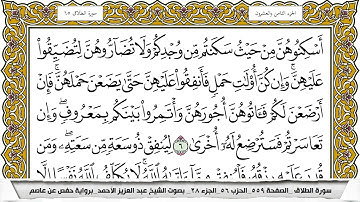 الجزء الثامن والعشرون
سورة الطلاق ٦٥
أَسْكِنُوهُنَّ مِنْ حَيْثُ سَكَنتُم مِّن وُجْدِكُمْ وَلَا تُضَآرُّوهُنَّ لِتُضَيِّقُوا۟
عَلَيْهِنَّ ۚ وَإِن كُنَّ أُو۟لَٰتِ حَمْلٍ فَأَنفِقُوا۟ عَلَيْهِنَّ حَتَّىٰ يَضَعْنَ حَمْلَهُنَّ ۚ فَإِنْ
أَرْضَعْنَ لَكُمْ فَـَٔاتُوهُنَّ أُجُورَهُنَّ ۖ وَأْتَمِرُوا۟ بَيْنَكُم بِمَعْرُوفٍ ۖ وَإِن
تَعَاسَرْتُمْ فَسَتُرْضِعُ لَهُۥٓ أُخْرَىٰ ٦ لِيُنفِقْ ذُو سَعَةٍ مِّن سَعَتِهِۦ ۖ وَمَن
قُدِرَ عَلَيْهِ رِزْقُهُۥ فَلْيُنفِقْ مِمَّآ ءَاتَىٰهُ ٱللَّهُ ۚ لَا يُكَلِّفُ ٱللَّهُ نَفْسًا إِلَّا
سورة الطلاق _ الصفحة ٥٥٩_ الحزب ٥٦_ الجزء ٢٨_ بصوت الشيخ عبد العزيز الأحمد_ برواية حفص عن عاصم